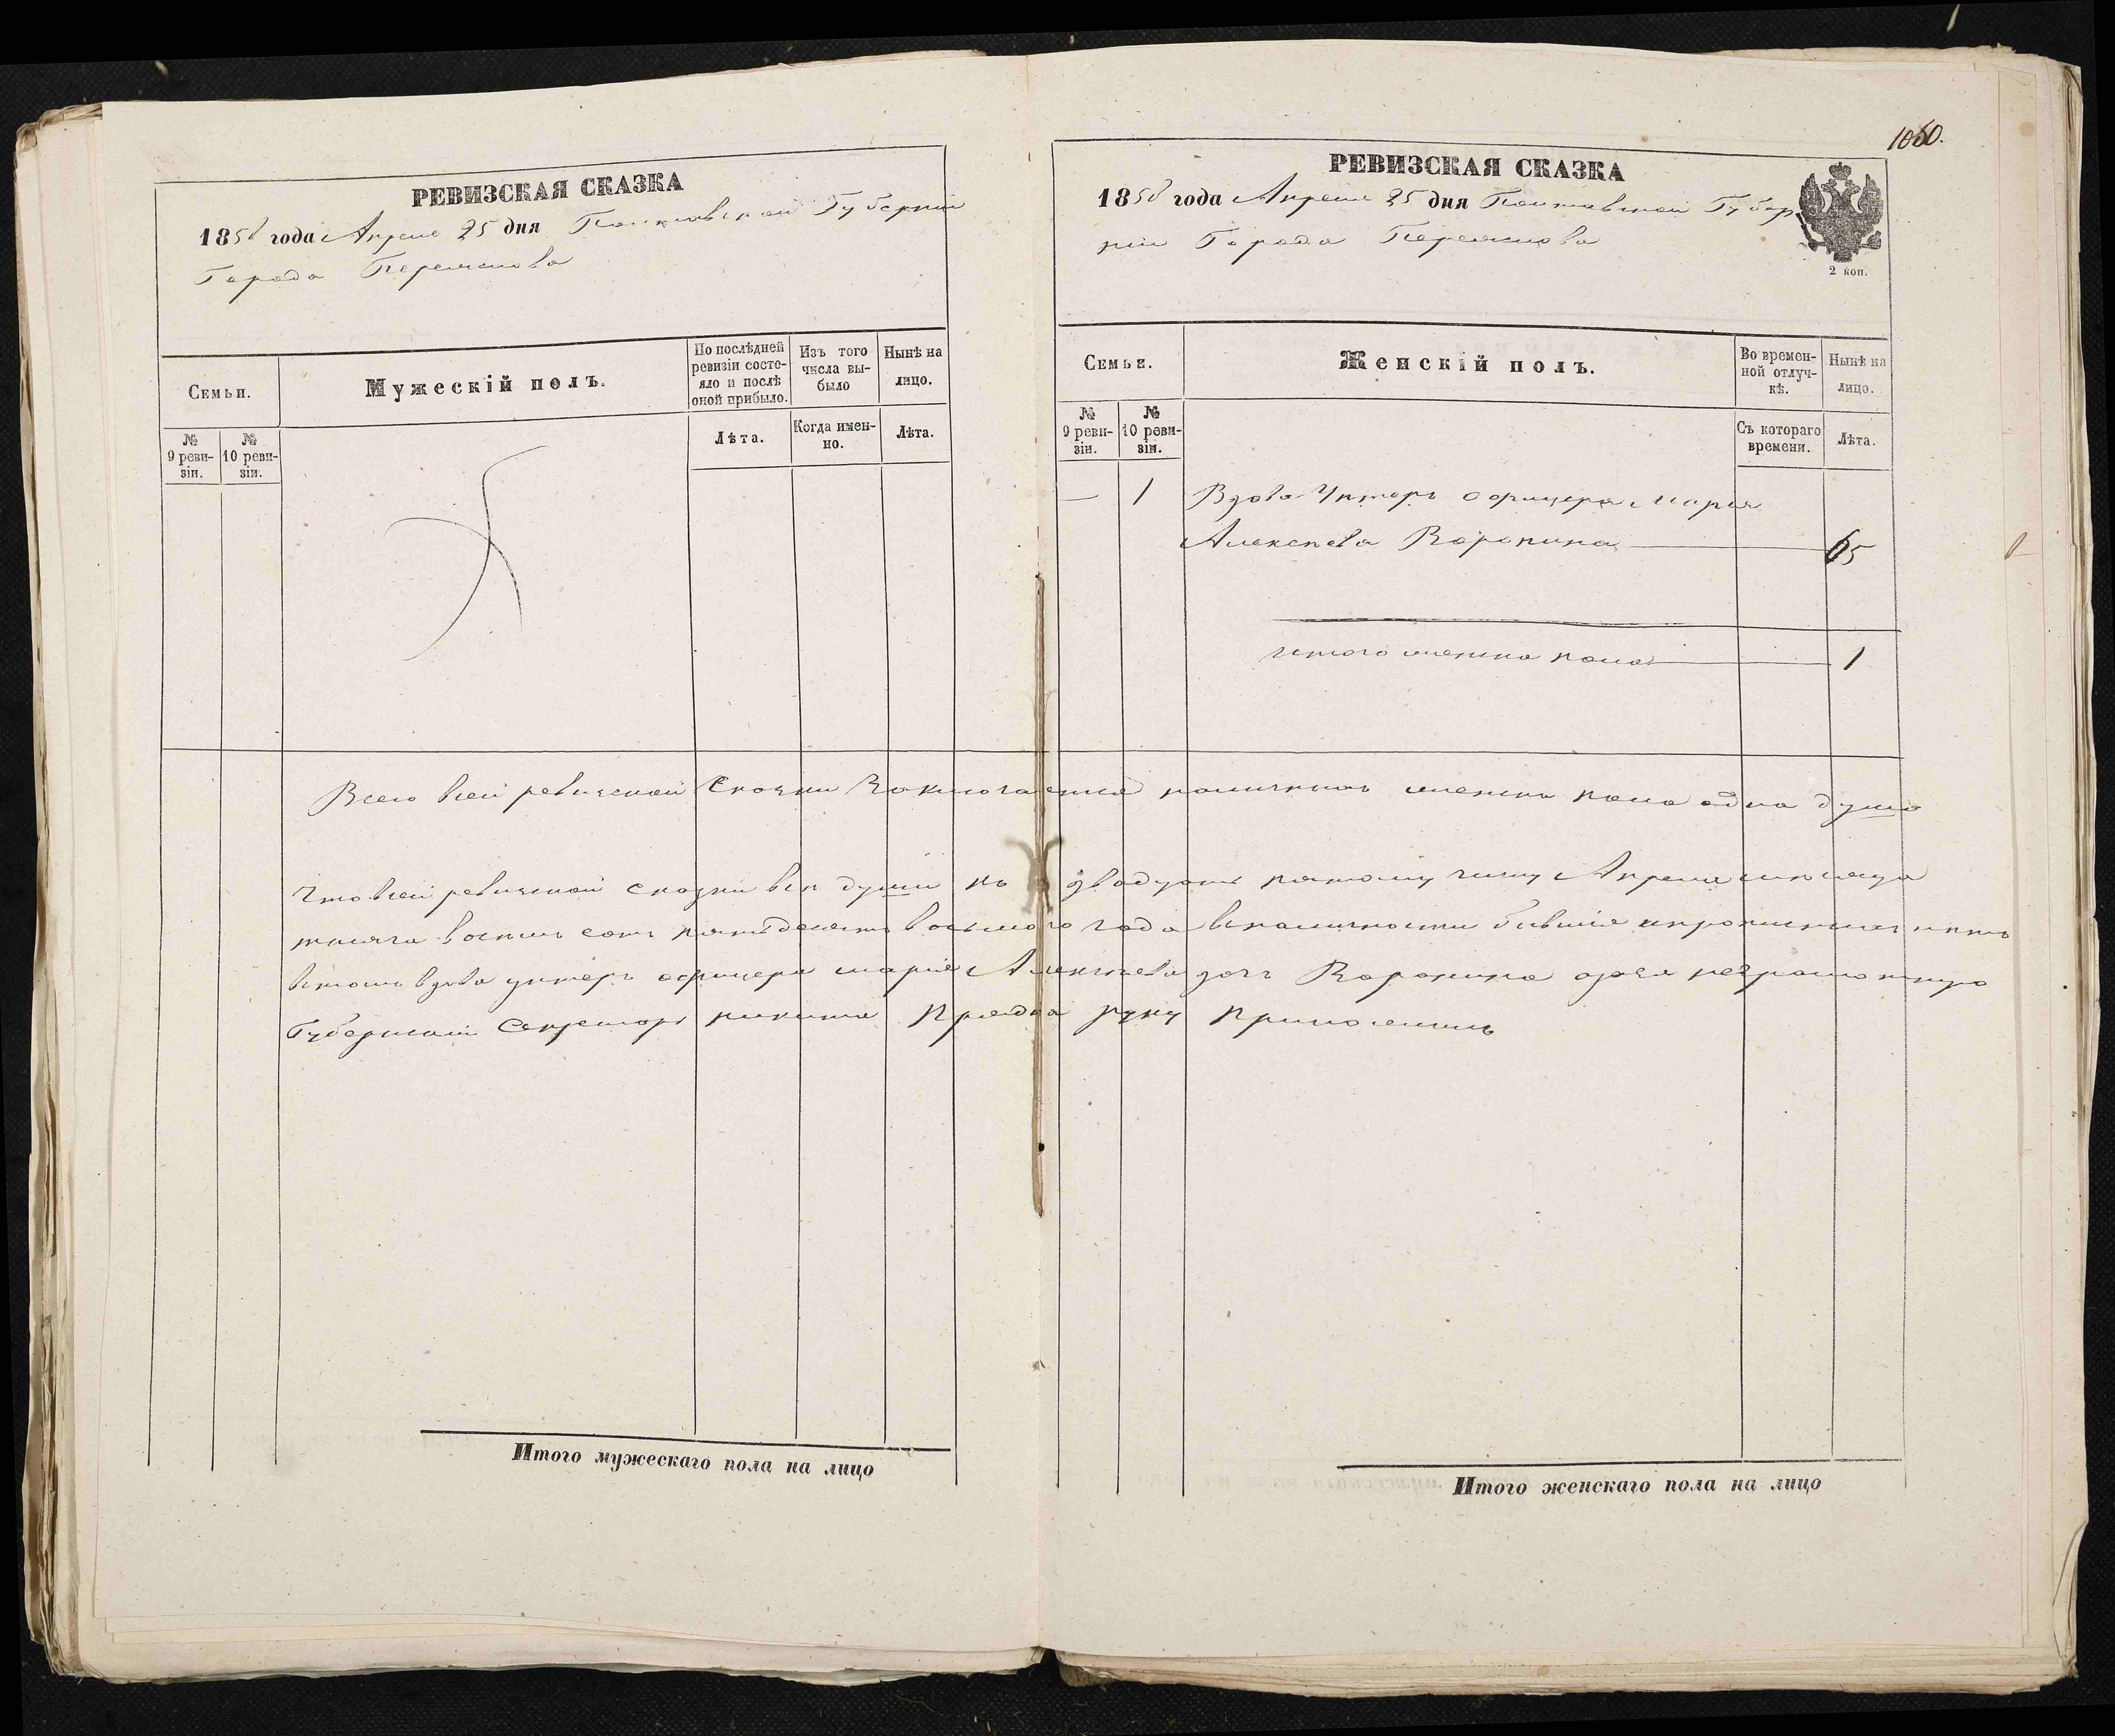 1060.
РЕВИЗСКАЯ СКАЗКА
1858 года Апреля 25 дня Полтавской Губернии
Города Переяслова
Семьи.
Мужескій полъ.
По послѣдней ревизіи состояло и послѣ оной прибыло.
Изъ того числа выбыло
Нынѣ на лицо.
№ 9 ревизіи.
№ 10 ревизіи.
Лѣта.
Когда именно.
Лѣта.
РЕВИЗСКАЯ СКАЗКА
1858 года Апреля 25 дня Полтавской Губер
ніи Города Переяслова
2 коп.
Семьи.
Женскій полъ.
Во временной отлучкѣ.
Нынѣ на лицо.
№ 9 ревизіи.
№ 10 ревизіи.
Съ котораго времени.
Лѣта.
— 1 Вдова Унтеръ офицера Марія
Алексеева Воронина 65
итого женска пола 1
Всего всей ревизской Сказки Заключается наличныхъ женска пола одна душа
Что всей ревизской сказки вся души къ двадцать пятому числу Апреля месяца
тысяча восемь сотъ пятьдесятъ восьмого года вналичности бывшія
втомъ вдова унтеръ офицера Марія Алексеева дочь Воронина
Губернский Секретарь никита руку приложилъ
Итого мужескаго пола на лицо
Итого женскаго пола на лицо